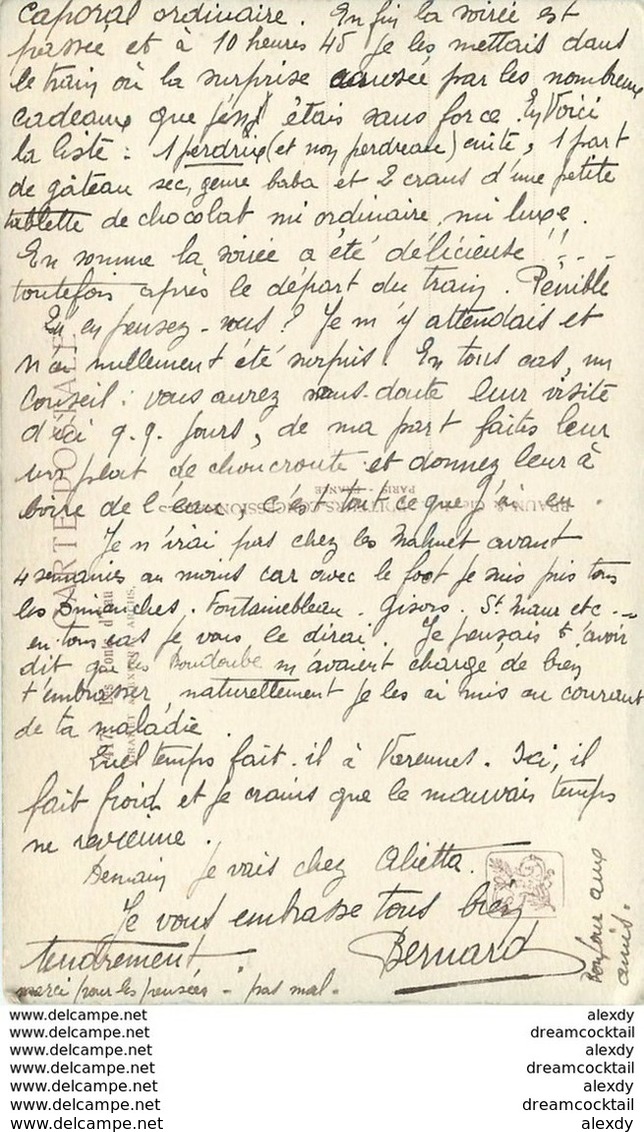 caporal ordinaire. Enfin la soirée est
passée et à 10 heures 45 je les mettais dans
le train où la surprise causée par les nombreux
cadeaux que j'en étais sans force. En Voici
la liste : 1 perdrix (et non perdreau) cuite, 1 part
de gâteau sec, genre baba et 2 crans d'une petite
tablette de chocolat mi ordinaire, mi luxe.
En somme la soirée a été délicieuse !! - - -
toutefois après le départ du train. Pénible
Qu'en pensez-vous ? Je m'y attendais et
n'ai nullement été surpris. En tous cas, un
conseil : vous aurez sans-doute leur visite
d'ici q.q. jours, de ma part faites leur
un plat de choucroute et donnez leur à
boire de l'eau, c'est tout ce que j'ai eu.
Je n'irai pas chez les avant
4 semaines au moins car avec le foot je suis pris tous
les Dimanches. Fontainebleau. Gisors. St Maur etc - --
en tous cas je vous le dirai. Je pensais t'avoir
dit que les m'avaient chargé de bien
t'embrasser, naturellement je les ai mis au courant
de ta maladie.
Quel temps fait-il à Varennes. Ici, il
fait froid et je crains que le mauvais temps
ne revienne.
Demain je vais chez Alietta.
Je vous embrasse tous bien
tendrement
Bernard
merci pour les pensées - pas mal.
Bonjour aux
amis.
CARTE POSTALE
BRAUN & Cie
PARIS - FRANCE
www.delcampe.net alexdy
www.delcampe.net dreamcocktail
www.delcampe.net alexdy
www.delcampe.net dreamcocktail
www.delcampe.net alexdy
www.delcampe.net dreamcocktail
www.delcampe.net alexdy